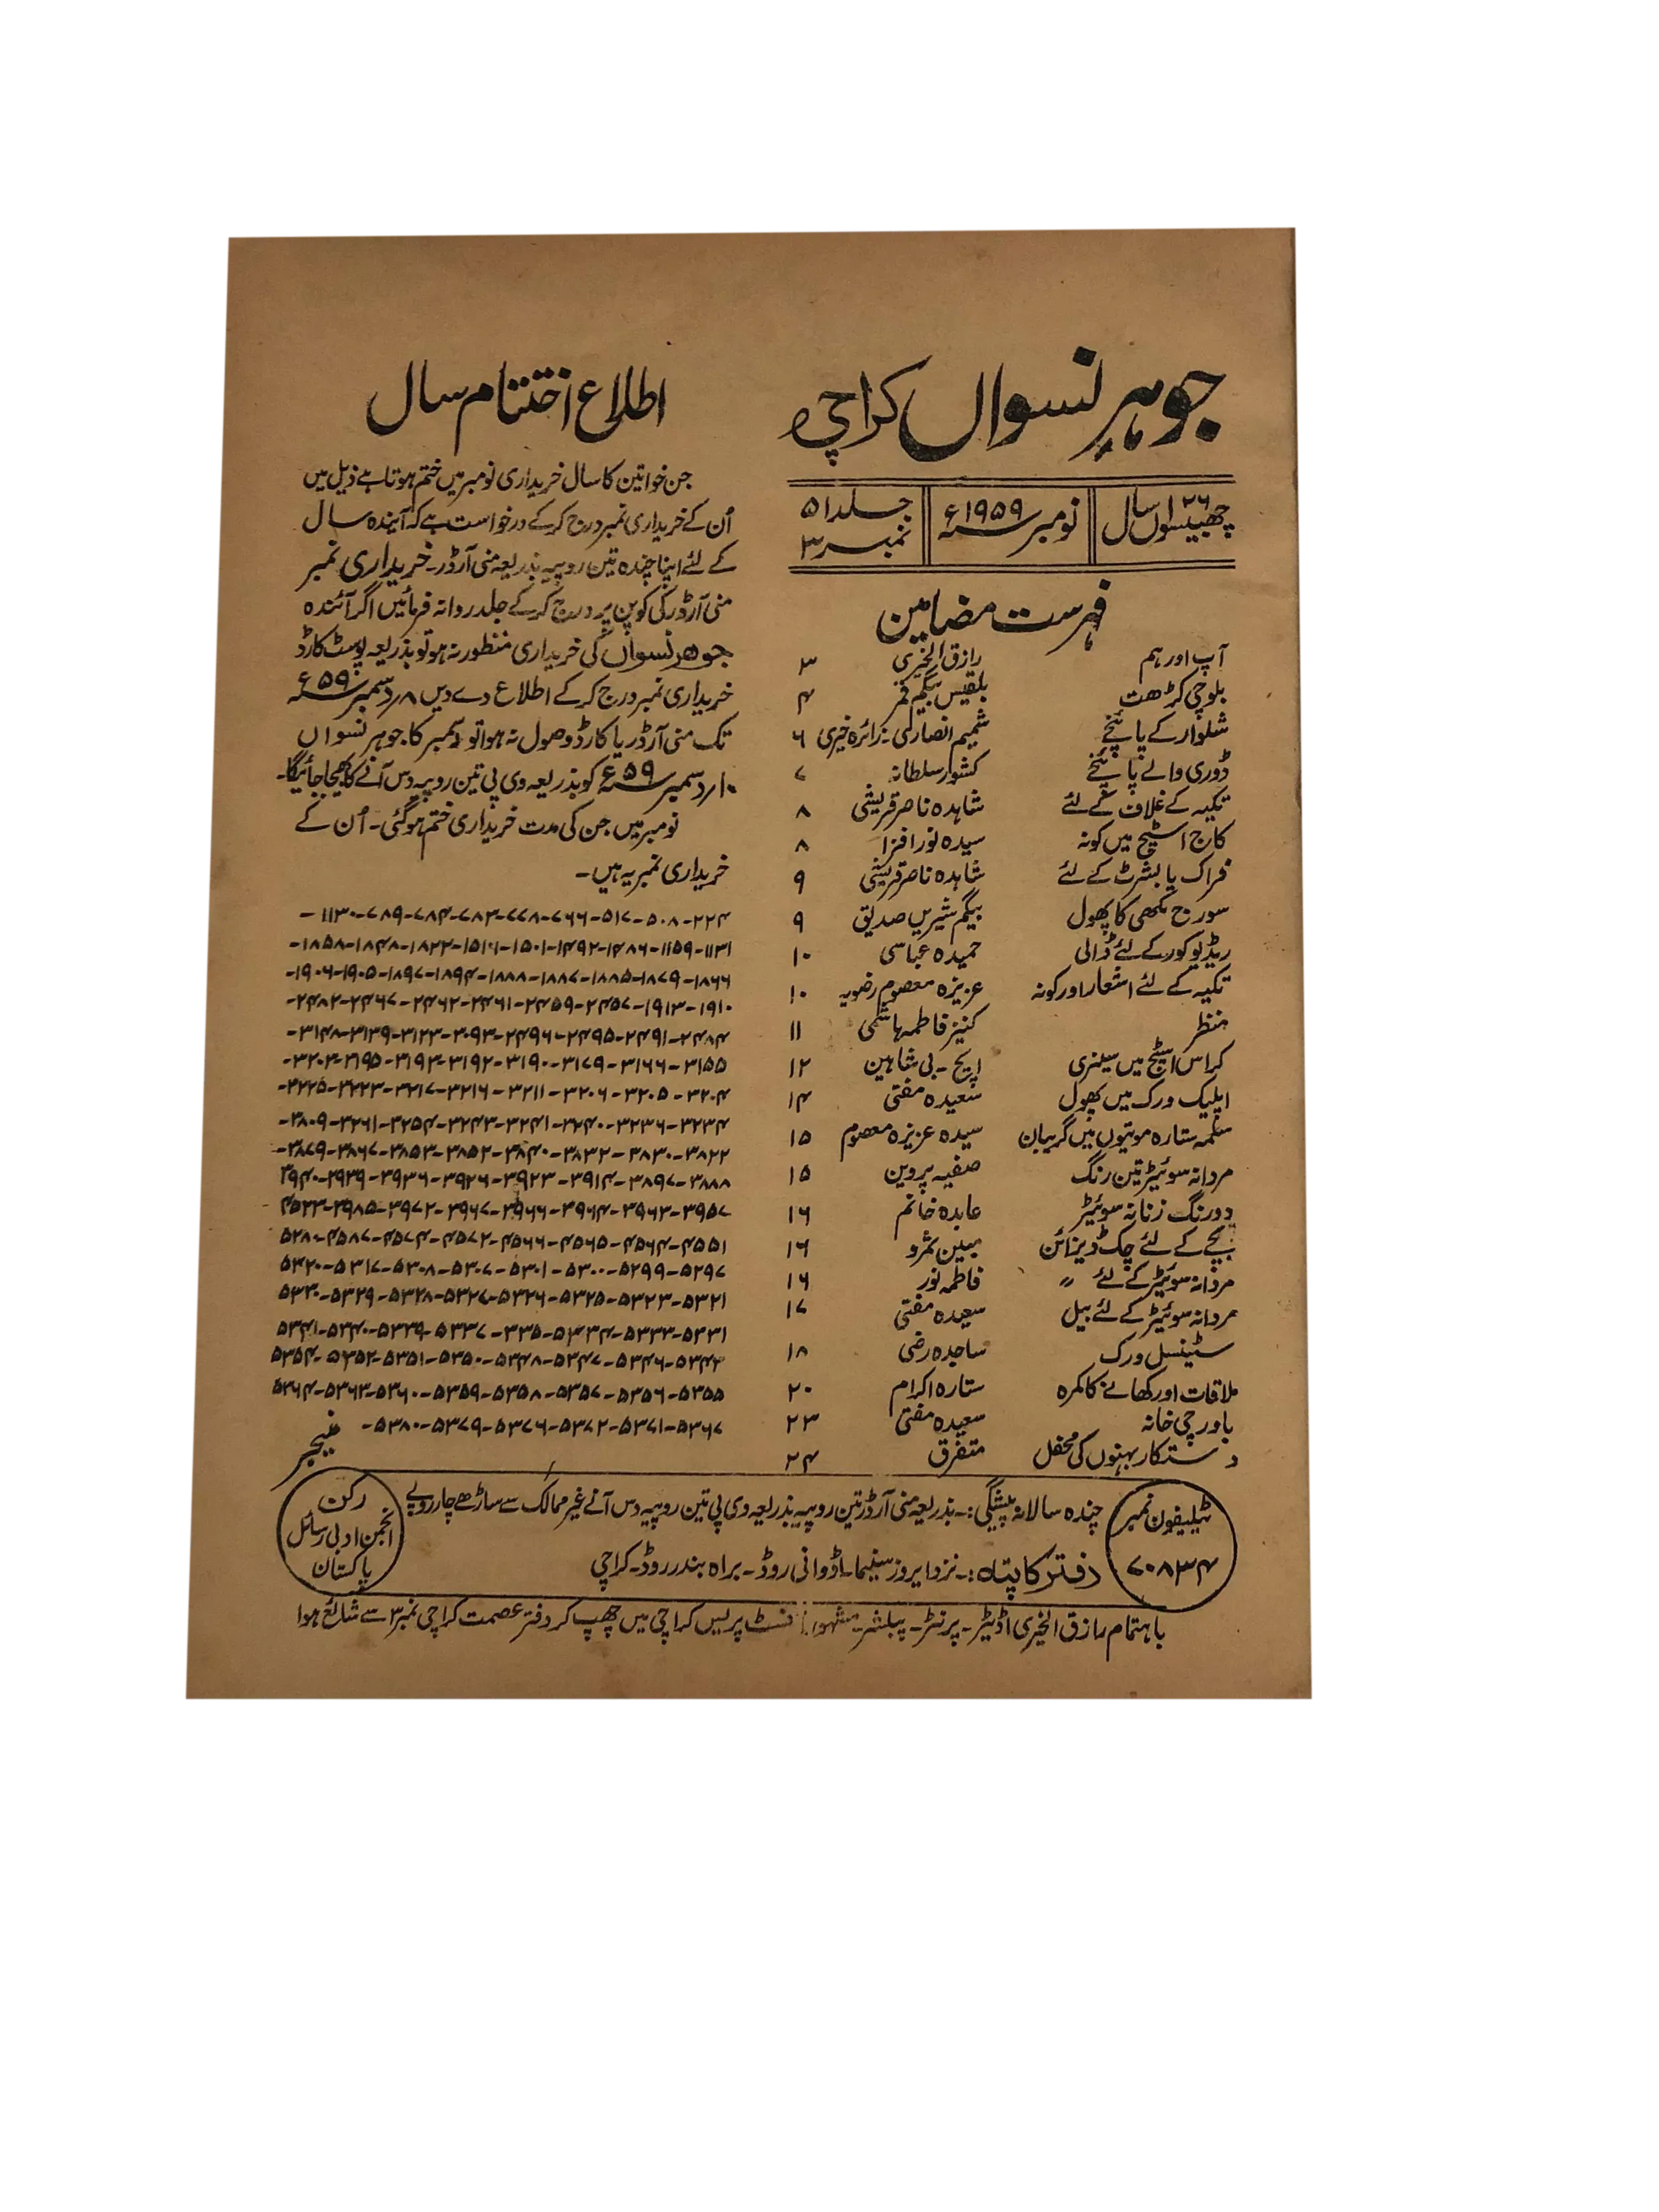 جوہر نسواں کراچی
چھبیسواں ۲۶ سال
نومبر ۱۹۵۹ء
جلد ۵۱
نمبر ۳
فہرست مضامین
آپ اور ہم رازق الخیری ۳
بلوچی کڑھت بلقیس بیگم قمر ۴
شلوار کے پائنچے شمیم انصاری۔زائرہ خیری ۶
ڈوری والے پائنچے کشور سلطانہ ۷
تکیہ کے غلاف کے لئے شاہدہ ناصر قریشی ۸
کاج اسٹیچ میں کونہ سیدہ نور افزا ۸
فراک یا بشرٹ کے لئے شاہدہ ناصر قریشی ۹
سورج مکھی کا پھول بیگم شیریں صدیق ۹
ریڈیو کور کے لئے ڈالی حمیدہ عباسی ۱۰
تکیہ کے لئے اشعار اور کونہ عزیزہ معصوم رضویہ ۱۰
منظر کنیز فاطمہ ہاشمی ۱۱
کراس اسٹیچ میں سینری ایچ۔بی شاہین ۱۲
اپلیک ورک میں پھول سعیدہ مفتی ۱۴
سلمہ ستارہ موتیوں میں گریبان سیدہ عزیزہ معصوم ۱۵
مردانہ سوئیٹر تین رنگ صفیہ پروین ۱۵
دو رنگ زنانہ سوئیٹر عابدہ خانم ۱۶
بچے کے لئے چک ڈیزائن مبین ثمرو ۱۶
مردانہ سوئیٹر کے لئے 〃 فاطمہ نور ۱۶
مردانہ سوئیٹر کے لئے بیل سعیدہ مفتی ۱۷
سٹینسل ورک ساجدہ رضی ۱۸
ملاقات اور کھانے کا کمرہ ستارہ اکرام ۲۰
باورچی خانہ سعیدہ مفتی ۲۳
دستکار بہنوں کی محفل متفرق ۲۴
اطلاع اختتام سال
جن خواتین کا سال خریداری نومبر میں ختم ہوتا ہے ذیل میں
اُن کے خریداری نمبر درج کر کے درخواست ہے کہ آیندہ سال
کے لئے اپنا چندہ تین روپیہ بذریعہ منی آرڈر۔ خریداری نمبر
منی آرڈر کی کوپن پر درج کر کے جلد روانہ فرمائیں اگر آئندہ
جوہر نسواں کی خریداری منظور نہ ہو تو بذریعہ پوسٹ کارڈ
خریداری نمبر درج کر کے اطلاع دے دیں ۸ر دسمبر ۵۹ء
تک منی آرڈر یا کارڈ وصول نہ ہوا تو دسمبر کا جوہر نسواں
۱۰ر دسمبر ۵۹ء کو بذریعہ وی پی تین روپیہ دس آنے کا بھیجا جائیگا۔
نومبر میں جن کی مدت خریداری ختم ہو گئی۔ اُن کے
خریداری نمبر یہ ہیں۔
۲۲۴-۵۰۸-۵۱۷-۷۶۶-۷۷۸-۷۸۳-۷۸۴-۷۸۹-۱۱۳۰-
۱۱۳۱-۱۱۵۹-۱۴۸۶-۱۴۹۲-۱۵۰۱-۱۵۱۰-۱۸۲۲-۱۸۴۸-۱۸۵۸-
۱۸۶۶-۱۸۷۹-۱۸۸۵-۱۸۸۷-۱۸۸۸-۱۸۹۴-۱۸۹۷-۱۹۰۵-۱۹۰۶-
۱۹۱۰-۱۹۱۳-۲۴۵۷-۲۴۵۹-۲۴۶۱-۲۴۶۲-۲۴۶۷-۲۴۸۲-
۲۴۸۴-۲۴۹۱-۲۴۹۵-۲۴۹۶-۳۰۹۳-۳۱۲۳-۳۱۳۹-۳۱۴۸-
۳۱۵۵-۳۱۶۶-۳۱۷۹-۳۱۹۰-۳۱۹۲-۳۱۹۳-۳۱۹۵-۳۲۰۳-
۳۲۰۴-۳۲۰۵-۳۲۰۶-۳۲۱۱-۳۲۱۶-۳۲۱۷-۳۲۲۳-۳۲۲۵-
۳۲۳۴-۳۲۳۶-۳۲۴۰-۳۲۴۱-۳۲۴۳-۳۲۵۴-۳۲۶۱-۳۸۰۹-
۳۸۲۲-۳۸۳۰-۳۸۳۲-۳۸۴۰-۳۸۵۲-۳۸۵۳-۳۸۶۷-۳۸۷۹-
۳۸۸۸-۳۸۹۷-۳۹۱۴-۳۹۲۳-۳۹۲۶-۳۹۳۶-۳۹۳۹-۳۹۴۰
۳۹۵۷-۳۹۶۳-۳۹۶۴-۳۹۶۶-۳۹۶۷-۳۹۷۲-۳۹۸۵-۴۵۳۳
۴۵۵۱-۴۵۶۴-۴۵۶۵-۴۵۶۶-۴۵۷۲-۴۵۷۴-۴۵۸۷-۵۲۸۰
۵۲۹۷-۵۲۹۹-۵۳۰۰-۵۳۰۱-۵۳۰۷-۵۳۰۸-۵۳۱۷-۵۳۲۰
۵۳۲۱-۵۳۲۳-۵۳۲۵-۵۳۲۶-۵۳۲۷-۵۳۲۸-۵۳۲۹-۵۳۳۰
۵۳۳۱-۵۳۳۳-۵۳۳۴-۳۳۵-۵۳۳۷-۵۳۳۹-۵۳۴۰-۵۳۴۱
۵۳۴۴-۵۳۴۶-۵۳۴۷-۵۳۴۸-۵۳۵۰-۵۳۵۱-۵۳۵۲-۵۳۵۴
۵۳۵۵-۵۳۵۶-۵۳۵۷-۵۳۵۸-۵۳۵۹-۵۳۶۰-۵۳۶۳-۵۳۶۴
۵۳۶۷-۵۳۷۱-۵۳۷۲-۵۳۷۶-۵۳۷۹-۵۳۸۰-
منیجر
ٹیلیفون نمبر
۷۰۸۳۴
چندہ سالانہ پیشگی:۔ بذریعہ منی آرڈر تین روپیہ بذریعہ وی پی تین روپیہ دس آنے غیر ممالک سے ساڑھے چار روپے
دفتر کا پتہ:۔ نزد ایروز سنیما۔ اڈوانی روڈ۔ براہ بندر روڈ۔ کراچی
رکن
انجمن ادبی رسائل
پاکستان
باہتمام رازق الخیری اڈیٹر۔ پرنٹر۔ پبلشر۔ مشہور پریس کراچی میں چھپ کر دفتر عصمت کراچی نمبر ۳ سے شائع ہوا